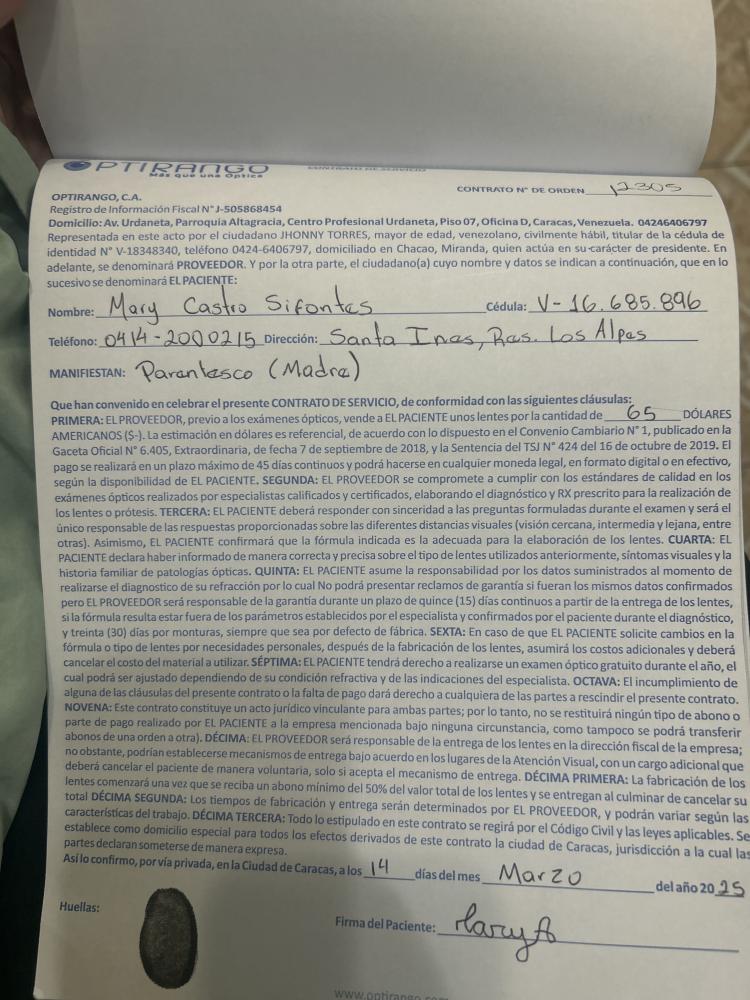 OPTIRANGO
Más que una Óptica
CONTRATO DE SERVICIO
CONTRATO N° DE ORDEN 12305
OPTIRANGO, C.A.
Registro de Información Fiscal N° J-505868454
Domicilio: Av. Urdaneta, Parroquia Altagracia, Centro Profesional Urdaneta, Piso 07, Oficina D, Caracas, Venezuela. 04246406797
Representada en este acto por el ciudadano JHONNY TORRES, mayor de edad, venezolano, civilmente hábil, titular de la cédula de
identidad N° V-18348340, teléfono 0424-6406797, domiciliado en Chacao, Miranda, quien actúa en su carácter de presidente. En
adelante, se denominará PROVEEDOR. Y por la otra parte, el ciudadano(a) cuyo nombre y datos se indican a continuación, que en lo
sucesivo se denominará EL PACIENTE:
Nombre: Mary Castro Sifontes Cédula: V-16.685.896
Teléfono: 0414-2000215 Dirección: Santa Ines, Res. Los Alpes
MANIFIESTAN: Parentesco (Madre)
Que han convenido en celebrar el presente CONTRATO DE SERVICIO, de conformidad con las siguientes cláusulas:
PRIMERA: EL PROVEEDOR, previo a los exámenes ópticos, vende a EL PACIENTE unos lentes por la cantidad de 65 DÓLARES
AMERICANOS ($-). La estimación en dólares es referencial, de acuerdo con lo dispuesto en el Convenio Cambiario N° 1, publicado en la
Gaceta Oficial N° 6.405, Extraordinaria, de fecha 7 de septiembre de 2018, y la Sentencia del TSJ N° 424 del 16 de octubre de 2019. El
pago se realizará en un plazo máximo de 45 días continuos y podrá hacerse en cualquier moneda legal, en formato digital o en efectivo,
según la disponibilidad de EL PACIENTE. SEGUNDA: EL PROVEEDOR se compromete a cumplir con los estándares de calidad en los
exámenes ópticos realizados por especialistas calificados y certificados, elaborando el diagnóstico y RX prescrito para la realización de
los lentes o prótesis. TERCERA: EL PACIENTE deberá responder con sinceridad a las preguntas formuladas durante el examen y será el
único responsable de las respuestas proporcionadas sobre las diferentes distancias visuales (visión cercana, intermedia y lejana, entre
otras). Asimismo, EL PACIENTE confirmará que la fórmula indicada es la adecuada para la elaboración de los lentes. CUARTA: EL
PACIENTE declara haber informado de manera correcta y precisa sobre el tipo de lentes utilizados anteriormente, síntomas visuales y la
historia familiar de patologías ópticas. QUINTA: EL PACIENTE asume la responsabilidad por los datos suministrados al momento de
realizarse el diagnostico de su refracción por lo cual No podrá presentar reclamos de garantía si fueran los mismos datos confirmados
pero EL PROVEEDOR será responsable de la garantía durante un plazo de quince (15) días continuos a partir de la entrega de los lentes,
si la fórmula resulta estar fuera de los parámetros establecidos por el especialista y confirmados por el paciente durante el diagnóstico,
y treinta (30) días por monturas, siempre que sea por defecto de fábrica. SEXTA: En caso de que EL PACIENTE solicite cambios en la
fórmula o tipo de lentes por necesidades personales, después de la fabricación de los lentes, asumirá los costos adicionales y deberá
cancelar el costo del material a utilizar. SÉPTIMA: EL PACIENTE tendrá derecho a realizarse un examen óptico gratuito durante el año, el
cual podrá ser ajustado dependiendo de su condición refractiva y de las indicaciones del especialista. OCTAVA: El incumplimiento de
alguna de las cláusulas del presente contrato o la falta de pago dará derecho a cualquiera de las partes a rescindir el presente contrato.
NOVENA: Este contrato constituye un acto jurídico vinculante para ambas partes; por lo tanto, no se restituirá ningún tipo de abono o
parte de pago realizado por EL PACIENTE a la empresa mencionada bajo ninguna circunstancia, como tampoco se podrá transferir
abonos de una orden a otra). DÉCIMA: EL PROVEEDOR será responsable de la entrega de los lentes en la dirección fiscal de la empresa;
no obstante, podrían establecerse mecanismos de entrega bajo acuerdo en los lugares de la Atención Visual, con un cargo adicional que
deberá cancelar el paciente de manera voluntaria, solo si acepta el mecanismo de entrega. DÉCIMA PRIMERA: La fabricación de los
lentes comenzará una vez que se reciba un abono mínimo del 50% del valor total de los lentes y se entregan al culminar de cancelar su
total DÉCIMA SEGUNDA: Los tiempos de fabricación y entrega serán determinados por EL PROVEEDOR, y podrán variar según las
características del trabajo. DÉCIMA TERCERA: Todo lo estipulado en este contrato se regirá por el Código Civil y las leyes aplicables. Se
establece como domicilio especial para todos los efectos derivados de este contrato la ciudad de Caracas, jurisdicción a la cual las
partes declaran someterse de manera expresa.
Así lo confirmo, por vía privada, en la Ciudad de Caracas, a los 14 días del mes Marzo del año 2025
Huellas:
Firma del Paciente: Mary
www.optirango.com